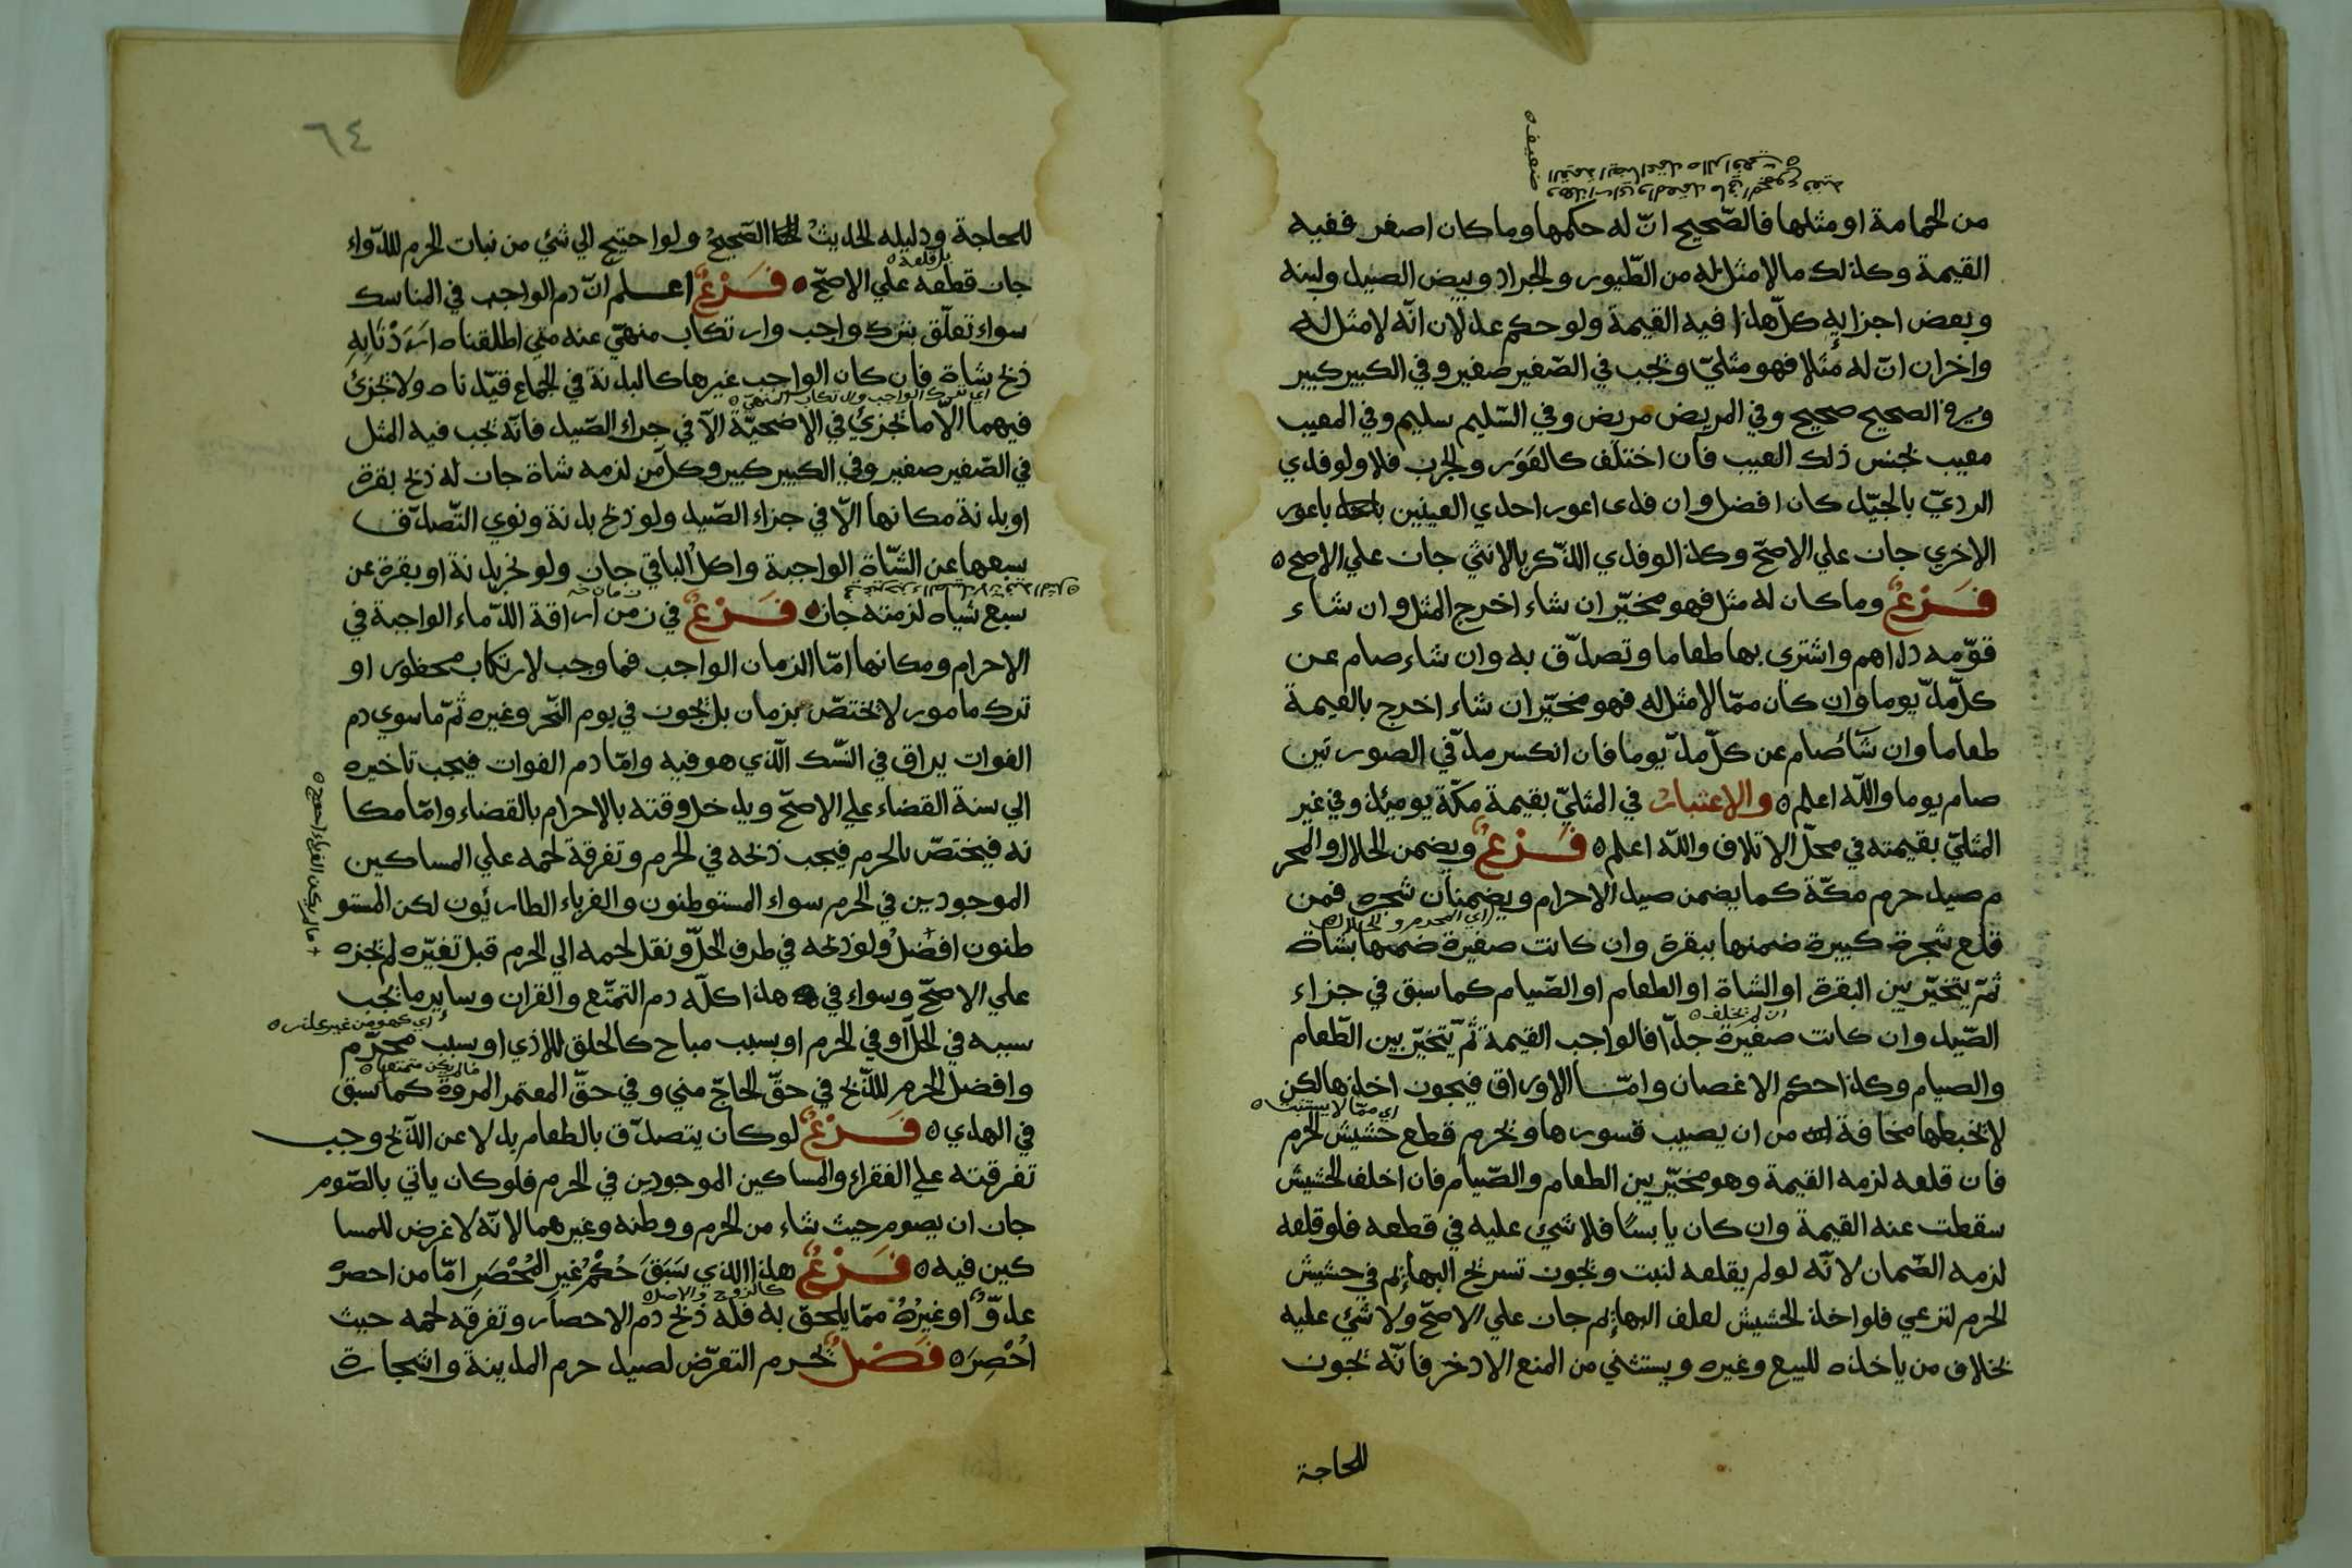 من الحمامة او مثلها فالصّحيح انّ له حكمها وما كان اصغر ففيه
القيمة وكذلك مالا مثل له من الطّيور والجراد وبيض الصيد ولبنه
وبعض اجزايه كلّ هذا فيه القيمة ولو حكم عدلان انّه لا مثل له
واخران انّ له مثلا فهو مثليّ ويجب في الصّغير صغير وفي الكبير كبير
وفي الصحيح صحيح وفي المريض مريض وفي السّليم سليم وفي المعيب
معيب بجنس ذلك العيب فان اختلف كالعَوَر والجرب فلا ولو فدي
الرديّ بالجيّد كان افضل وان فدى اعور احدي العينين باعور
الاخري جاز علي الاصحّ وكذا لو فدي الذّكر بالانثي جاز علي الاصح
فَرْعٌ وما كان له مثل فهو مخيّر ان شاء اخرج المثل وان شاء
قوّمه دراهم واشترى بها طعاما وتصدّق به وان شاء صام عن
كلّ مدّ يوما وان كان ممّا لا مثل له فهو مخيّر ان شاء اخرج بالقيمة
طعاما وان شآء صام عن كلّ مدّ يوما فان انكسر مدّ في الصورتين
صام يوما والله اعلم والاعتبارُ في المثليّ بقيمة مكّة يوميذ وفي غير
المثليّ بقيمته في محلّ الاتلاف والله اعلم فَرْعٌ ويضمن الحلال والمحر
م صيد حرم مكّة كما يضمن صيد الاحرام ويضمنان شجره فمن
اي المحرم والحلال
قلع شجرة كبيرة ضمنها ببقرة وان كانت صغيرة ضمنها بشاة
ثمّ يتخيّر بين البقرة او الشاة او الطعام او الصّيام كما سبق في جزاء
ان لم يخلف
الصّيد وان كانت صغيرة جدّا فالواجب القيمة ثمّ يتخيّر بين الطّعام
والصيام وكذا حكم الاغصان وامّا الاوراق فيجوز اخذها لكن
اي ممّا لا يستنبت
لا يخبطها مخافة من ان يصيب قسورها ويحرم قطع حشيش الحرم
فان قلعه لزمه القيمة وهو مخيّر بين الطعام والصّيام فان اخلف الحشيش
سقطت عنه القيمة وان كان يابسًا فلا شيء عليه في قطعه فلو قلعه
لزمه الضّمان لانّه لو لم يقلعه لنبت ويجوز تسريح البهايم في حشيش
الحرم لترعي فلو اخذ الحشيش لعلف البهايم جاز علي الاصحّ ولا شئ عليه
بخلاف من ياخذه للبيع وغيره ويستثني من المنع الاذخر فانّه يجوز
للحاجة
ضعيف
٦٤
للحاجة ودليله الحديثُ الصّحيحُ ولو احتيج الي شئ من نبات الحرم للدّواء
بل قلعه
جاز قطعه علي الاصحّ فَرْعٌ اعلم انّ دم الواجب في المناسك
سواء تعلّق بترك واجب وارتكاب منهيّ عنه متي اطلقناه اَرَدْنَا بِهِ
ذبح شاة فان كان الواجب غيرها كالبدنة في الجماع قيّدناه ولا يجزئ
اي ترك الواجب وارتكاب المنهيّ
فيهما الّا ما يجزئ في الاضحيّة الّا في جزاء الصّيد فانّه يجب فيه المثل
في الصّغير صغير وفي الكبير كبير وكلّ من لزمه شاة جاز له ذبح بقرة
او بدنة مكانها الّا في جزاء الصّيد ولو ذبح بدنة ونوي التّصدّق
بسبعها عن الشّاة الواجبة واكل الباقي جاز ولو نحر بدنة او بقرة عن
سبع شياه لزمته جاز فَرْعٌ في زمن اراقة الدّماء الواجبة في
الاحرام ومكانها امّا الزمان الواجب فما وجب لارتكاب محظور او
ترك مامور لا يختصّ بزمان بل يجوز في يوم النّحر وغيره ثمّ ما سوي دم
الفوات يراق في النّسك الّذي هو فيه وامّا دم الفوات فيجب تاخيره
الي سنة القضاء علي الاصحّ ويدخل وقته بالاحرام بالقضاء وامّا مكا
نه فيختصّ بالحرم فيجب ذبحه في الحرم وتفرقة لحمه علي المساكين
الموجودين في الحرم سواء المستوطنون والغرباء الطاريون لكن المستو
طنون افضلُ ولو ذبحه في طرف الحلّ ونقل لحمه الي الحرم قبل تغيّره لم يجزه
ما لم يكن الغرباء احوج
علي الاصحّ وسواء في هذا كلّه دم التمتّع والقران وساير ما يجب
اي كهو من غير عذر
سببه في الحلّ او في الحرم او بسبب مباح كالحلق للاذي او سبب محرّم
ما لم يكن متمتعا
وافضل الحرم للذّبح في حقّ الحاجّ مني وفي حقّ المعتمر المروة كما سبق
في الهدي فَرْعٌ لو كان يتصدّق بالطعام بدلا عن الذّبح وجب
تفرقته علي الفقراء والمساكين الموجودين في الحرم فلو كان ياتي بالصّوم
جاز ان يصوم حيث شاء من الحرم ووطنه وغيرهما لانّه لا غرض للمسا
كين فيه فَرْعٌ هذا الذي سَبَقَ حُكْمُ غيرِ المُحْصَرِ امّا من احصره
كالزوج والاصل
عدوّ او غيرُهُ ممّا يلحق به فله ذبح دم الاحصار وتفرقه لحمه حيث
اُحْصِرَ فَصْلٌ يحرم التعرّض لصيد حرم المدينة واشجاره